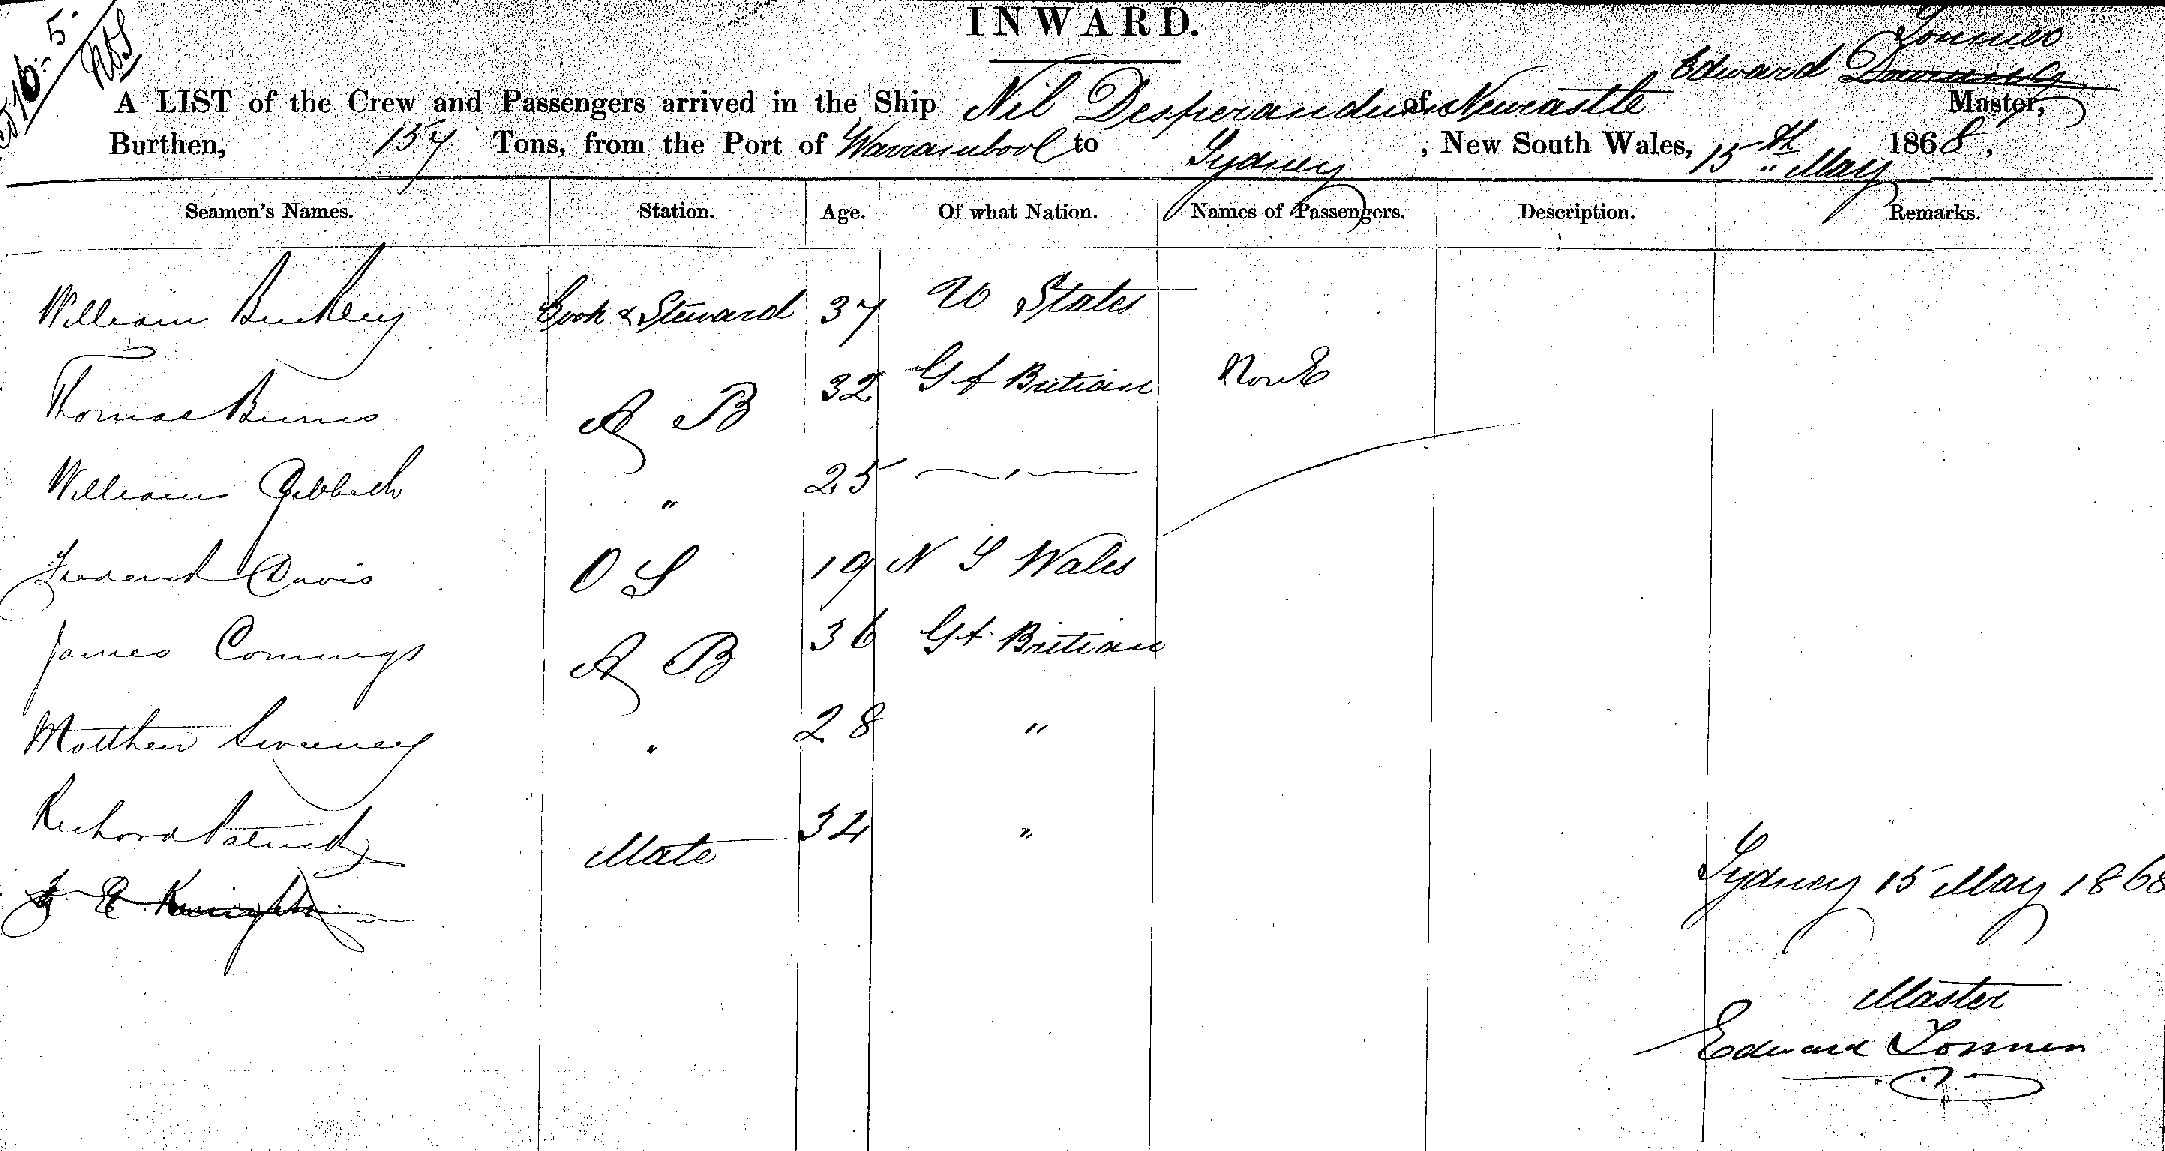 INWARD.
5
Edward
A LIST of the Crew and Passengers arrived in the Ship Nil Desperandum of Newcastle Master,
Burthen, 157 Tons, from the Port of Warrambool to Sydney, New South Wales, 15th May 1868,
Seamen's Names. Station. Age. Of what Nation. Names of Passengers. Description. Remarks.
William Buckley Cook & Steward 37 U States
Thomas Burns A B 32 Gt Britian None
William " 25 —"—
Frederick Davis O S 19 N S Wales
James Commings A B 36 Gt Britian
Matthew Sweeney " 28 "
Richard Patrick Mate 34 "
E Knight
Sydney 15 May 1868
Master
Edward